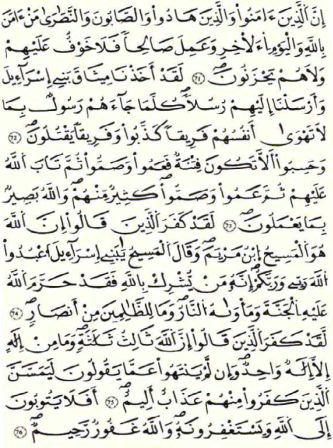 إِنَّ اَلذِينَ ءَامَنُواْ وَالذِينَ هَادُواْ وَالصَّابُونَ وَالنَّصَٰرَىٰ مَنْ ءَامَنَ
بِاللَّهِ وَالْيَوْمِ اِ۬لَاخِرِ وَعَمِلَ صَٰلِحاً فَلَا خَوْفٌ عَلَيْهِمْ
وَلَا هُمْ يَحْزَنُونَ ٧١ لَقَدَ اَخَذْنَا مِيثَٰقَ بَنِي إِسْرَآءِيلَ
وَأَرْسَلْنَا إِلَيْهِمْ رُسُلاً كُلَّمَا جَآءَهُمْ رَسُولٌ بِمَا
لَا تَهْوَىٰ أَنفُسُهُمْ فَرِيقاً كَذَّبُواْ وَفَرِيقاً يَقْتُلُونَ ٧٢
وَحَسِبُواْ أَلَّا تَكُونَ فِتْنَةٌ فَعَمُواْ وَصَمُّواْ ثُمَّ تَابَ اَللَّهُ
عَلَيْهِمْ ثُمَّ عَمُواْ وَصَمُّواْ كَثِيرٌ مِّنْهُمْ وَاللَّهُ بَصِيرٌ
بِمَا يَعْمَلُونَ ٧٣ لَقَدْ كَفَرَ اَلذِينَ قَالُواْ إِنَّ اَللَّهَ
هُوَ اَلْمَسِيحُ اُبْنُ مَرْيَمَ وَقَالَ اَلْمَسِيحُ يَٰبَنِي إِسْرَآءِيلَ اَعْبُدُواْ
اُللَّهَ رَبِّي وَرَبَّكُمْ إِنَّهُ مَنْ يُّشْرِكْ بِاللَّهِ فَقَدْ حَرَّمَ اَللَّهُ
عَلَيْهِ اِلْجَنَّةَ وَمَأْوَىٰهُ اُلنَّارُ وَمَا لِلظَّٰلِمِينَ مِنْ أَنصَارٍ ٧٤
لَقَدْ كَفَرَ اَلذِينَ قَالُواْ إِنَّ اَللَّهَ ثَالِثُ ثَلَٰثَةٍ وَمَا مِنْ إِلَٰهٍ
إِلَّا إِلَٰهٌ وَٰحِدٌ وَإِن لَّمْ يَنتَهُواْ عَمَّا يَقُولُونَ لَيَمَسَّنَّ
اَلذِينَ كَفَرُواْ مِنْهُمْ عَذَابٌ أَلِيمٌ ٧٥ أَفَلَا يَتُوبُونَ
إِلَى اَللَّهِ وَيَسْتَغْفِرُونَهُ وَاللَّهُ غَفُورٌ رَّحِيمٌ ٧٦